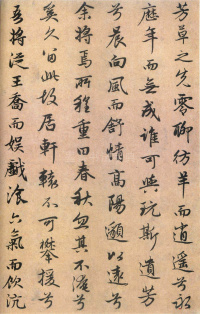 芳草之先零聊彷羊而逍遙兮永
歷年而無成誰可與玩斯遺芳
兮晨向風而舒情高陽邈以遠兮
余將焉所程重曰春秋忽其不淹兮
奚久留此故居軒轅不可攀援兮
吾將從王喬而娛戲湌六氣而飲沆